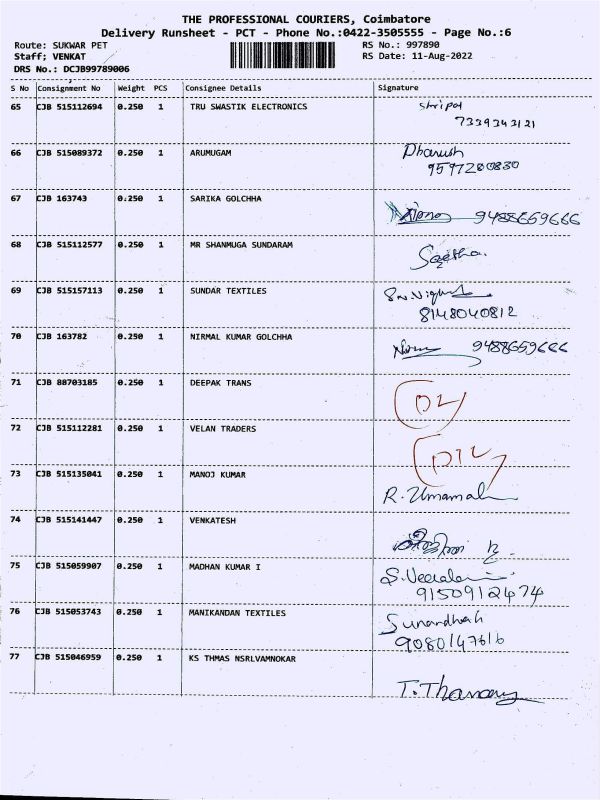 THE PROFESSIONAL COURIERS, Coimbatore
Delivery Runsheet - PCT - Phone No.:0422-3505555 - Page No.:6
Route: SUKWAR PET RS No.: 997890
Staff; VENKAT RS Date: 11-Aug-2022
DRS No.: DCJB99789006
S No Consignment No Weight PCS Consignee Details Signature
65 CJB 515112694 0.250 1 TRU SWASTIK ELECTRONICS Shripal
7339343121
66 CJB 515089372 0.250 1 ARUMUGAM Dhanush
9597280830
67 CJB 163743 0.250 1 SARIKA GOLCHHA
9488659666
68 CJB 515112577 0.250 1 MR SHANMUGA SUNDARAM
Seetha.
69 CJB 515157113 0.250 1 SUNDAR TEXTILES
8148040812
70 CJB 163782 0.250 1 NIRMAL KUMAR GOLCHHA
9488659666
71 CJB 88703185 0.250 1 DEEPAK TRANS
DL
72 CJB 515112281 0.250 1 VELAN TRADERS
73 CJB 515135041 0.250 1 MANOJ KUMAR
R. Umamah
74 CJB 515141447 0.250 1 VENKATESH
75 CJB 515059907 0.250 1 MADHAN KUMAR I
9150912474
76 CJB 515053743 0.250 1 MANIKANDAN TEXTILES
9080147616
77 CJB 515046959 0.250 1 KS THMAS NSRLVAMNOKAR